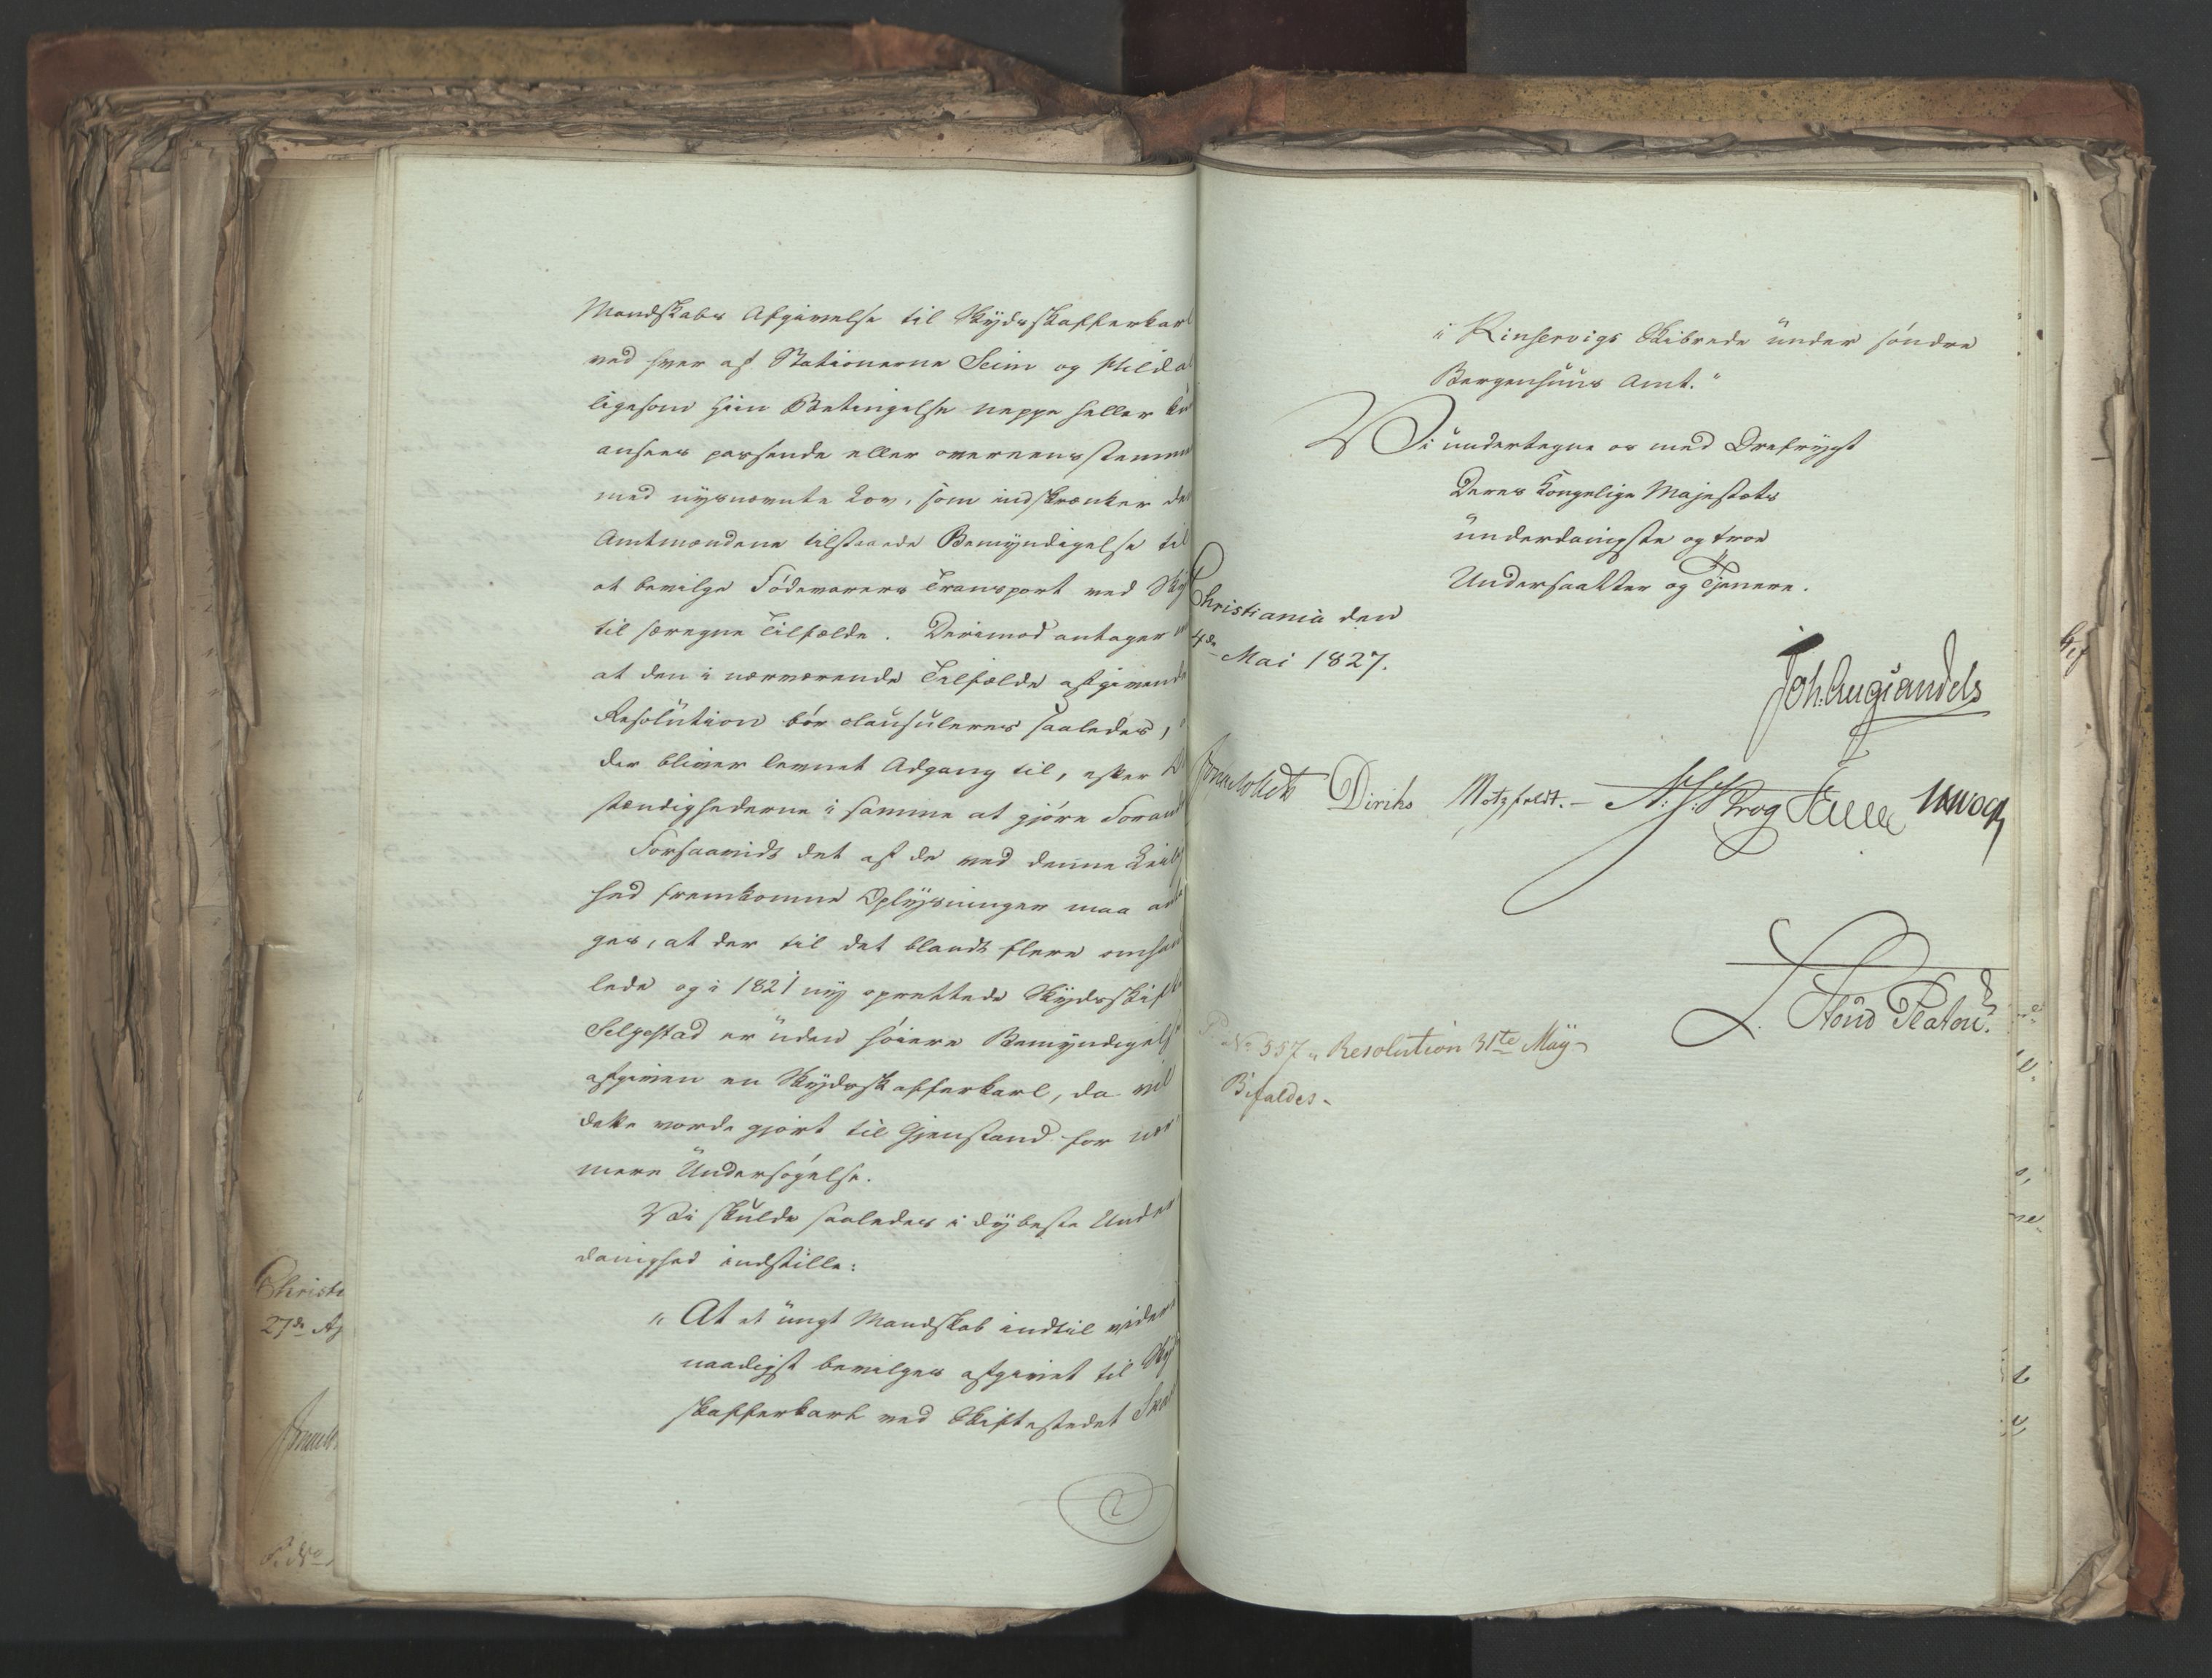 Mandskabs Afgivelse til Skydsskafferkarl
ved hver af Stationerne Seim og Hildal
ligesom hiin Betingelse neppe heller
ansees passende eller overeensstemme
med nysnævnte Lov, som indskrænker den
Amtmændene tilstaaede Bemyndigelse til
at bevilge Födevarers Transport ved
til særegne Tilfælde. Derimod antager
at den i nærværende Tilfælde afgivende
Resolution bör clausuleres saaledes,
der bliver levnet Adgang til, efter
stændighederne i samme at gjöre
Forsaavidt det af de ved denne
hed fremkomne Oplysninger maa
ges, at der til det blandt flere
lede og i 1821 ny oprettede
Selgestad er uden höiere Bemyndigelse
afgiven en Skydsskafferkarl, da vil
dette vorde gjort til Gjenstand for
mere Undersögelse.
Vi skulde saaledes i dybeste Under
danighed indstille:
"At et ungt Mandskab indtil videre
naadigst bevilges afgivet til
skafferkarl ved Skiftestedet
i Kinservigs Skibrede under söndre
Bergenhuus Amt."
Vi undertegne os med Ærefrygt
Deres Kongelige Majestæts
underdanigste og troe
Undersaatter og Tjenere.
Christiania den
4de Mai 1827.
Joh. Aug. Sandels
Jonas Collett Diriks Motzfeldt. - Krog
No 557. Resolution 31te May
Bifaldes -
Christi
27de Ap
P. No